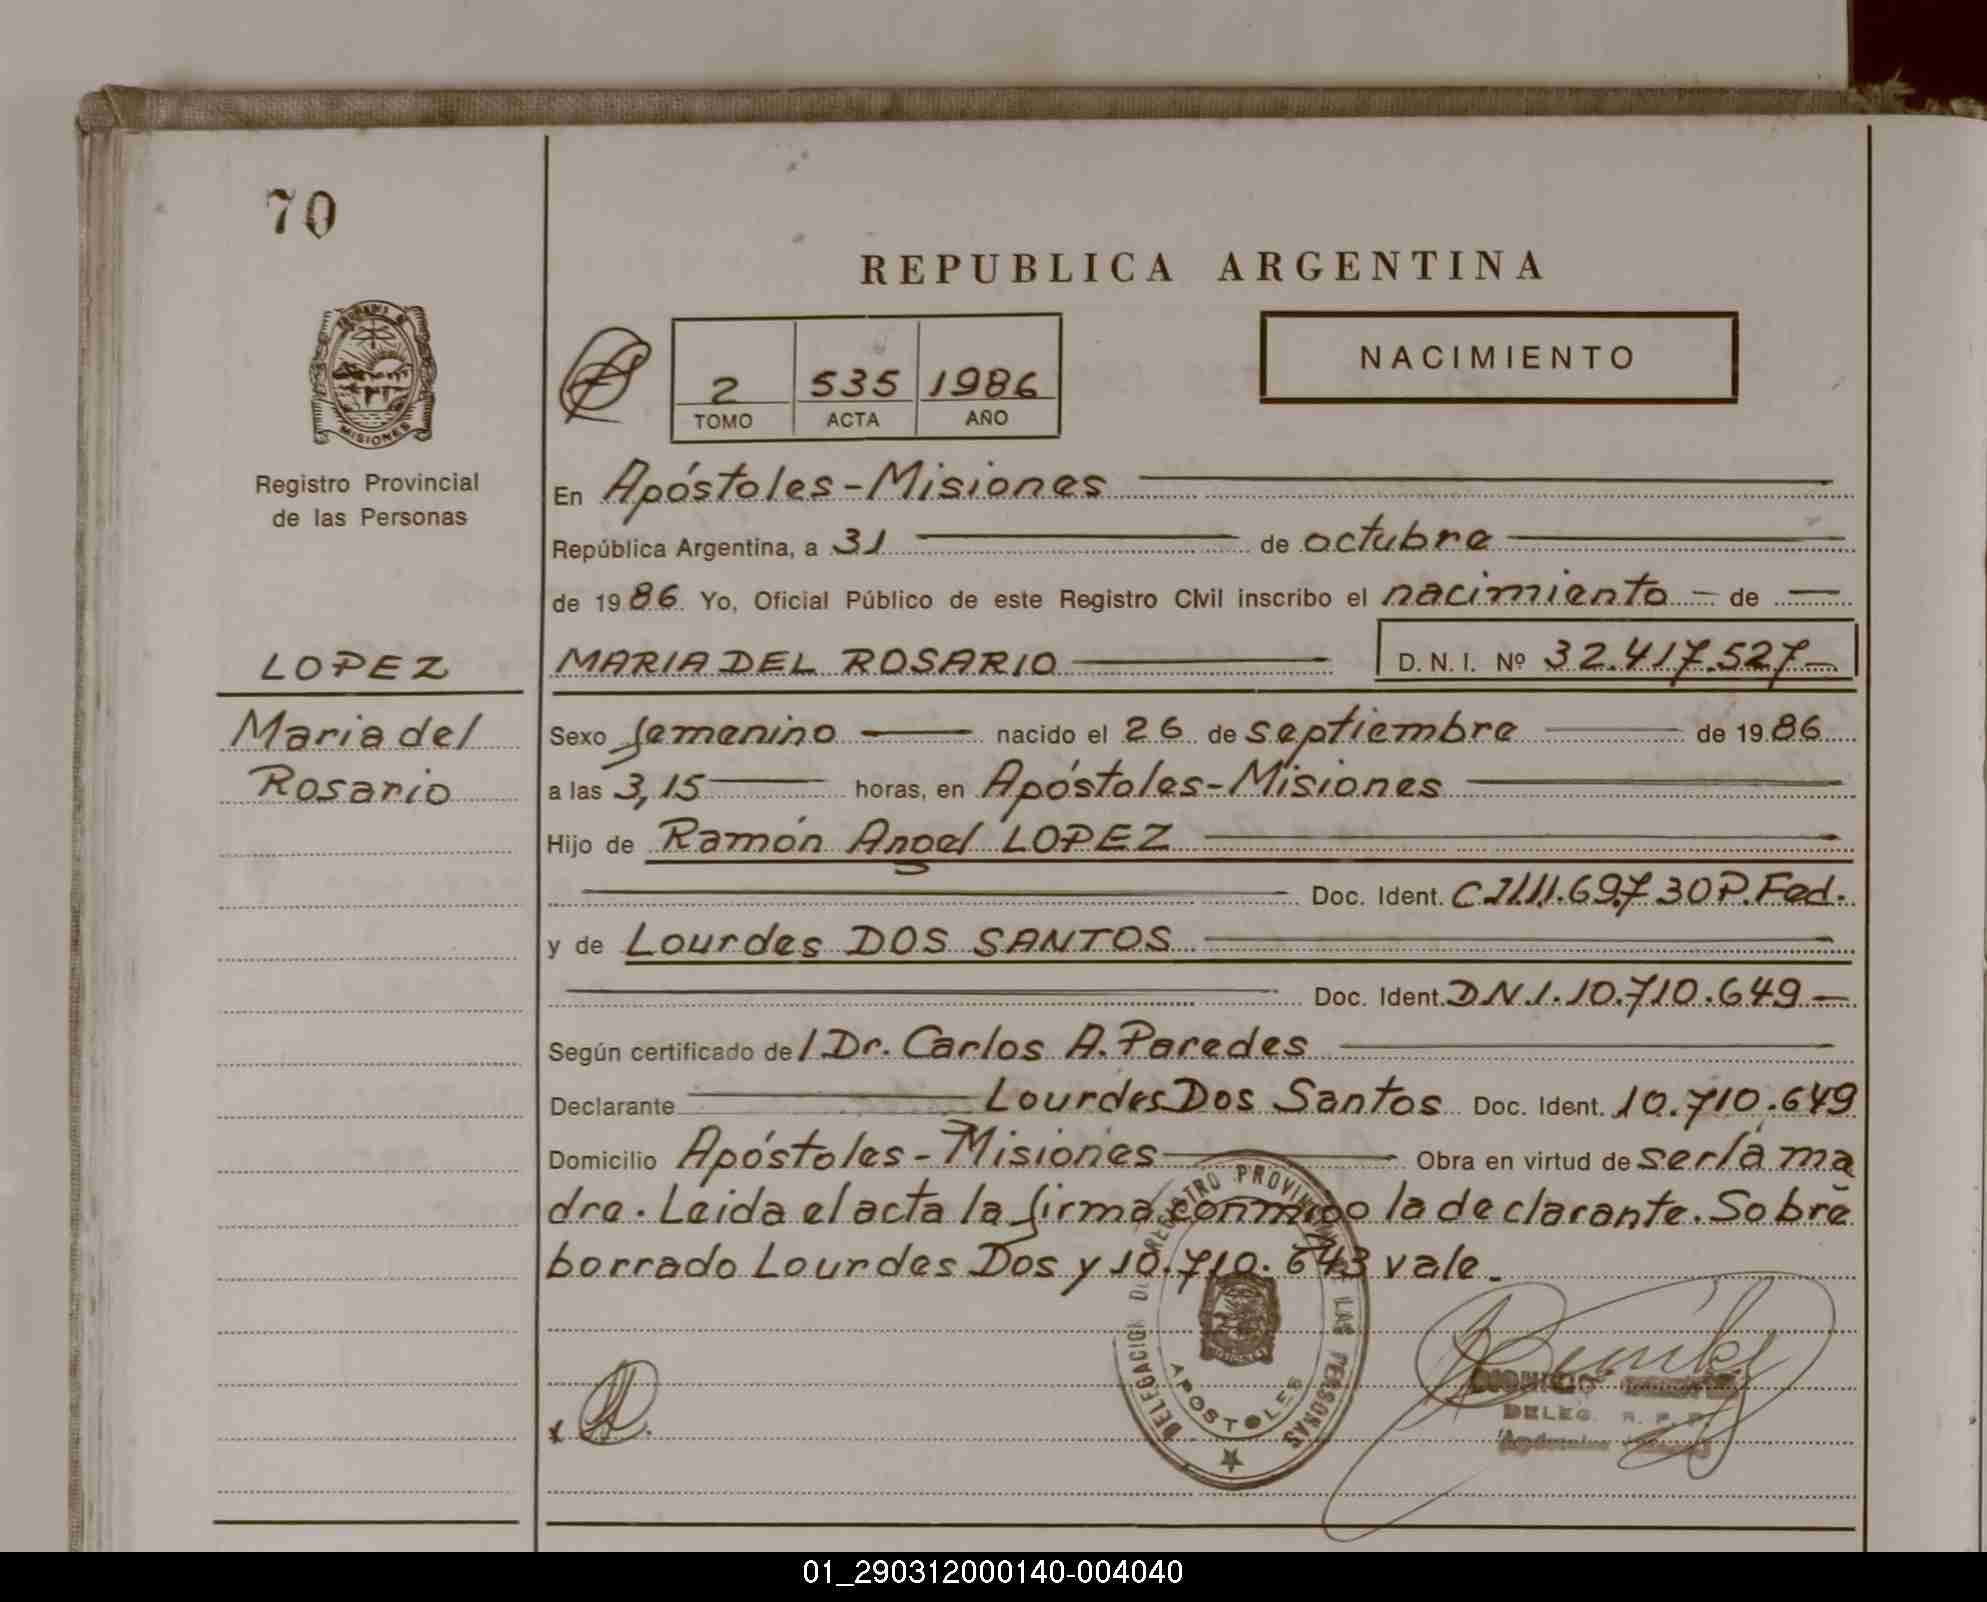 70
REPUBLICA ARGENTINA
MISIONES
Registro Provincial
de las Personas
2 535 1986
TOMO ACTA AÑO
NACIMIENTO
En Apóstoles-Misiones
República Argentina, a 31 de octubre
de 1986 Yo, Oficial Público de este Registro Civil inscribo el nacimiento de
LOPEZ
Maria del
Rosario
MARIA DEL ROSARIO D.N.I. Nº 32.417.527
Sexo femenino nacido el 26 de septiembre de 1986
a las 3,15 horas, en Apóstoles-Misiones
Hijo de Ramón Angel LOPEZ
Doc. Ident. P.Fed.
y de Lourdes DOS SANTOS
Doc. Ident. DNI.10.710.649
Según certificado del Dr. Carlos A. Paredes
Declarante Lourdes Dos Santos Doc. Ident. 10.710.649
Domicilio Apóstoles-Misiones Obra en virtud de ser la ma
dre. Leida el acta la firma conmigo la declarante. Sobre
borrado Lourdes Dos y 10.710.643 vale.
DELEGACION DEL REGISTRO PROVINCIAL DE LAS PERSONAS
APOSTOLES
DELEG. R. P. P.
01_290312000140-004040